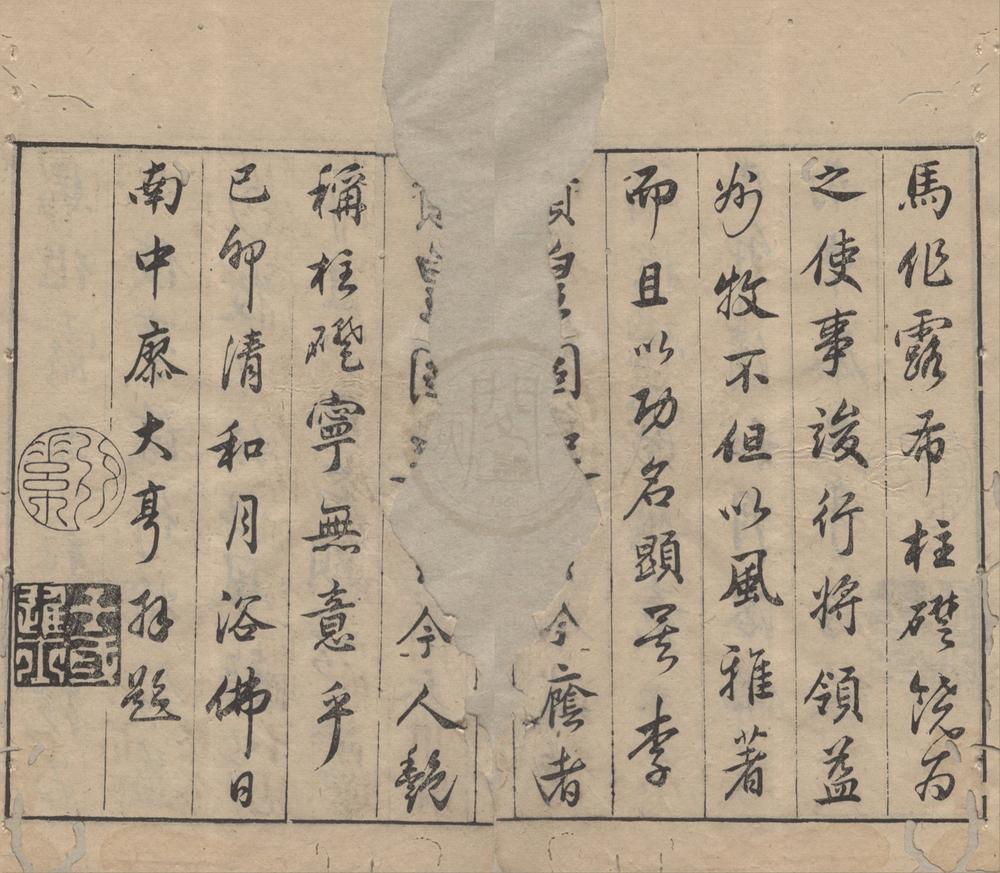 馬作露布柱礎饒為
之使事竣行將領益
州牧不但以風雅著
而且以功名顯矣李
皇固今者
今人艷
稱柱礎寧無意乎
己卯清和月浴佛日
南中廖大亨拜題